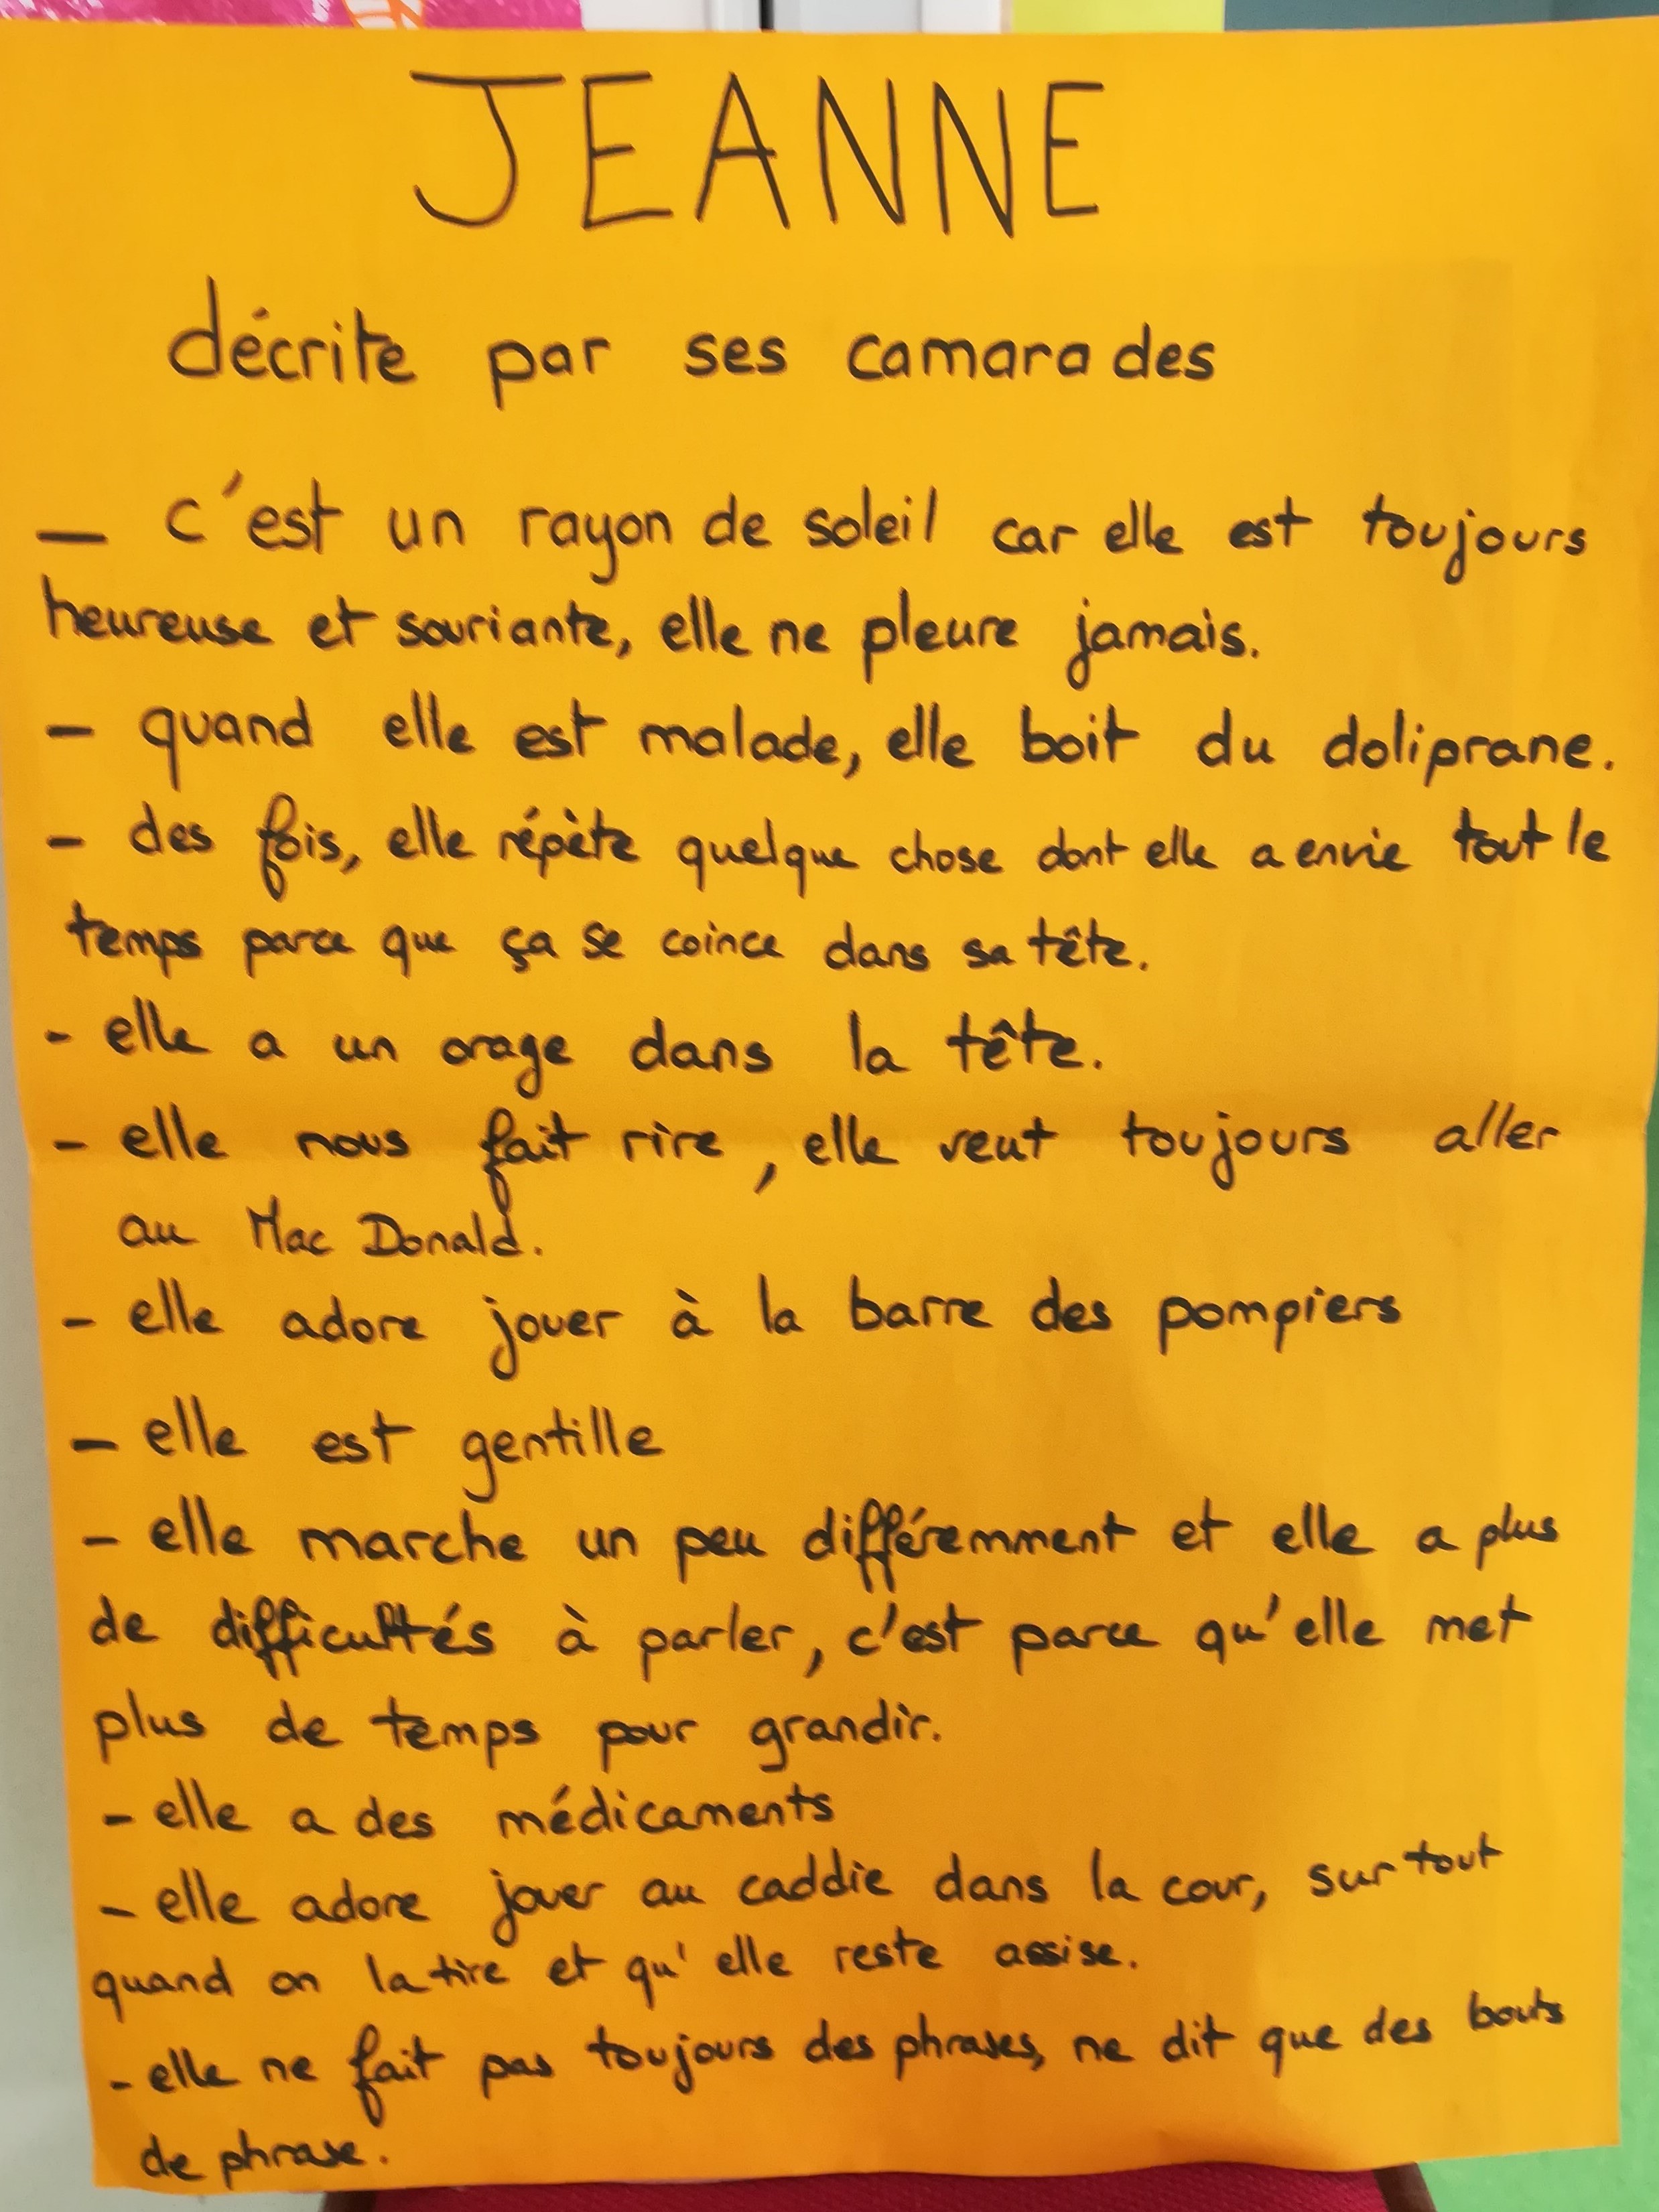 JEANNE
décrite par ses camarades
— c'est un rayon de soleil car elle est toujours
heureuse et souriante, elle ne pleure jamais.
- quand elle est malade, elle boit du doliprane.
- des fois, elle répète quelque chose dont elle a envie tout le
temps parce que ça se coince dans sa tête.
- elle a un orage dans la tête.
- elle nous fait rire, elle veut toujours aller
au Mac Donald.
- elle adore jouer à la barre des pompiers
- elle est gentille
- elle marche un peu différemment et elle a plus
de difficultés à parler, c'est parce qu'elle met
plus de temps pour grandir.
- elle a des médicaments
- elle adore jouer au caddie dans la cour, surtout
quand on la tire et qu'elle reste assise.
- elle ne fait pas toujours des phrases, ne dit que des bouts
de phrase.